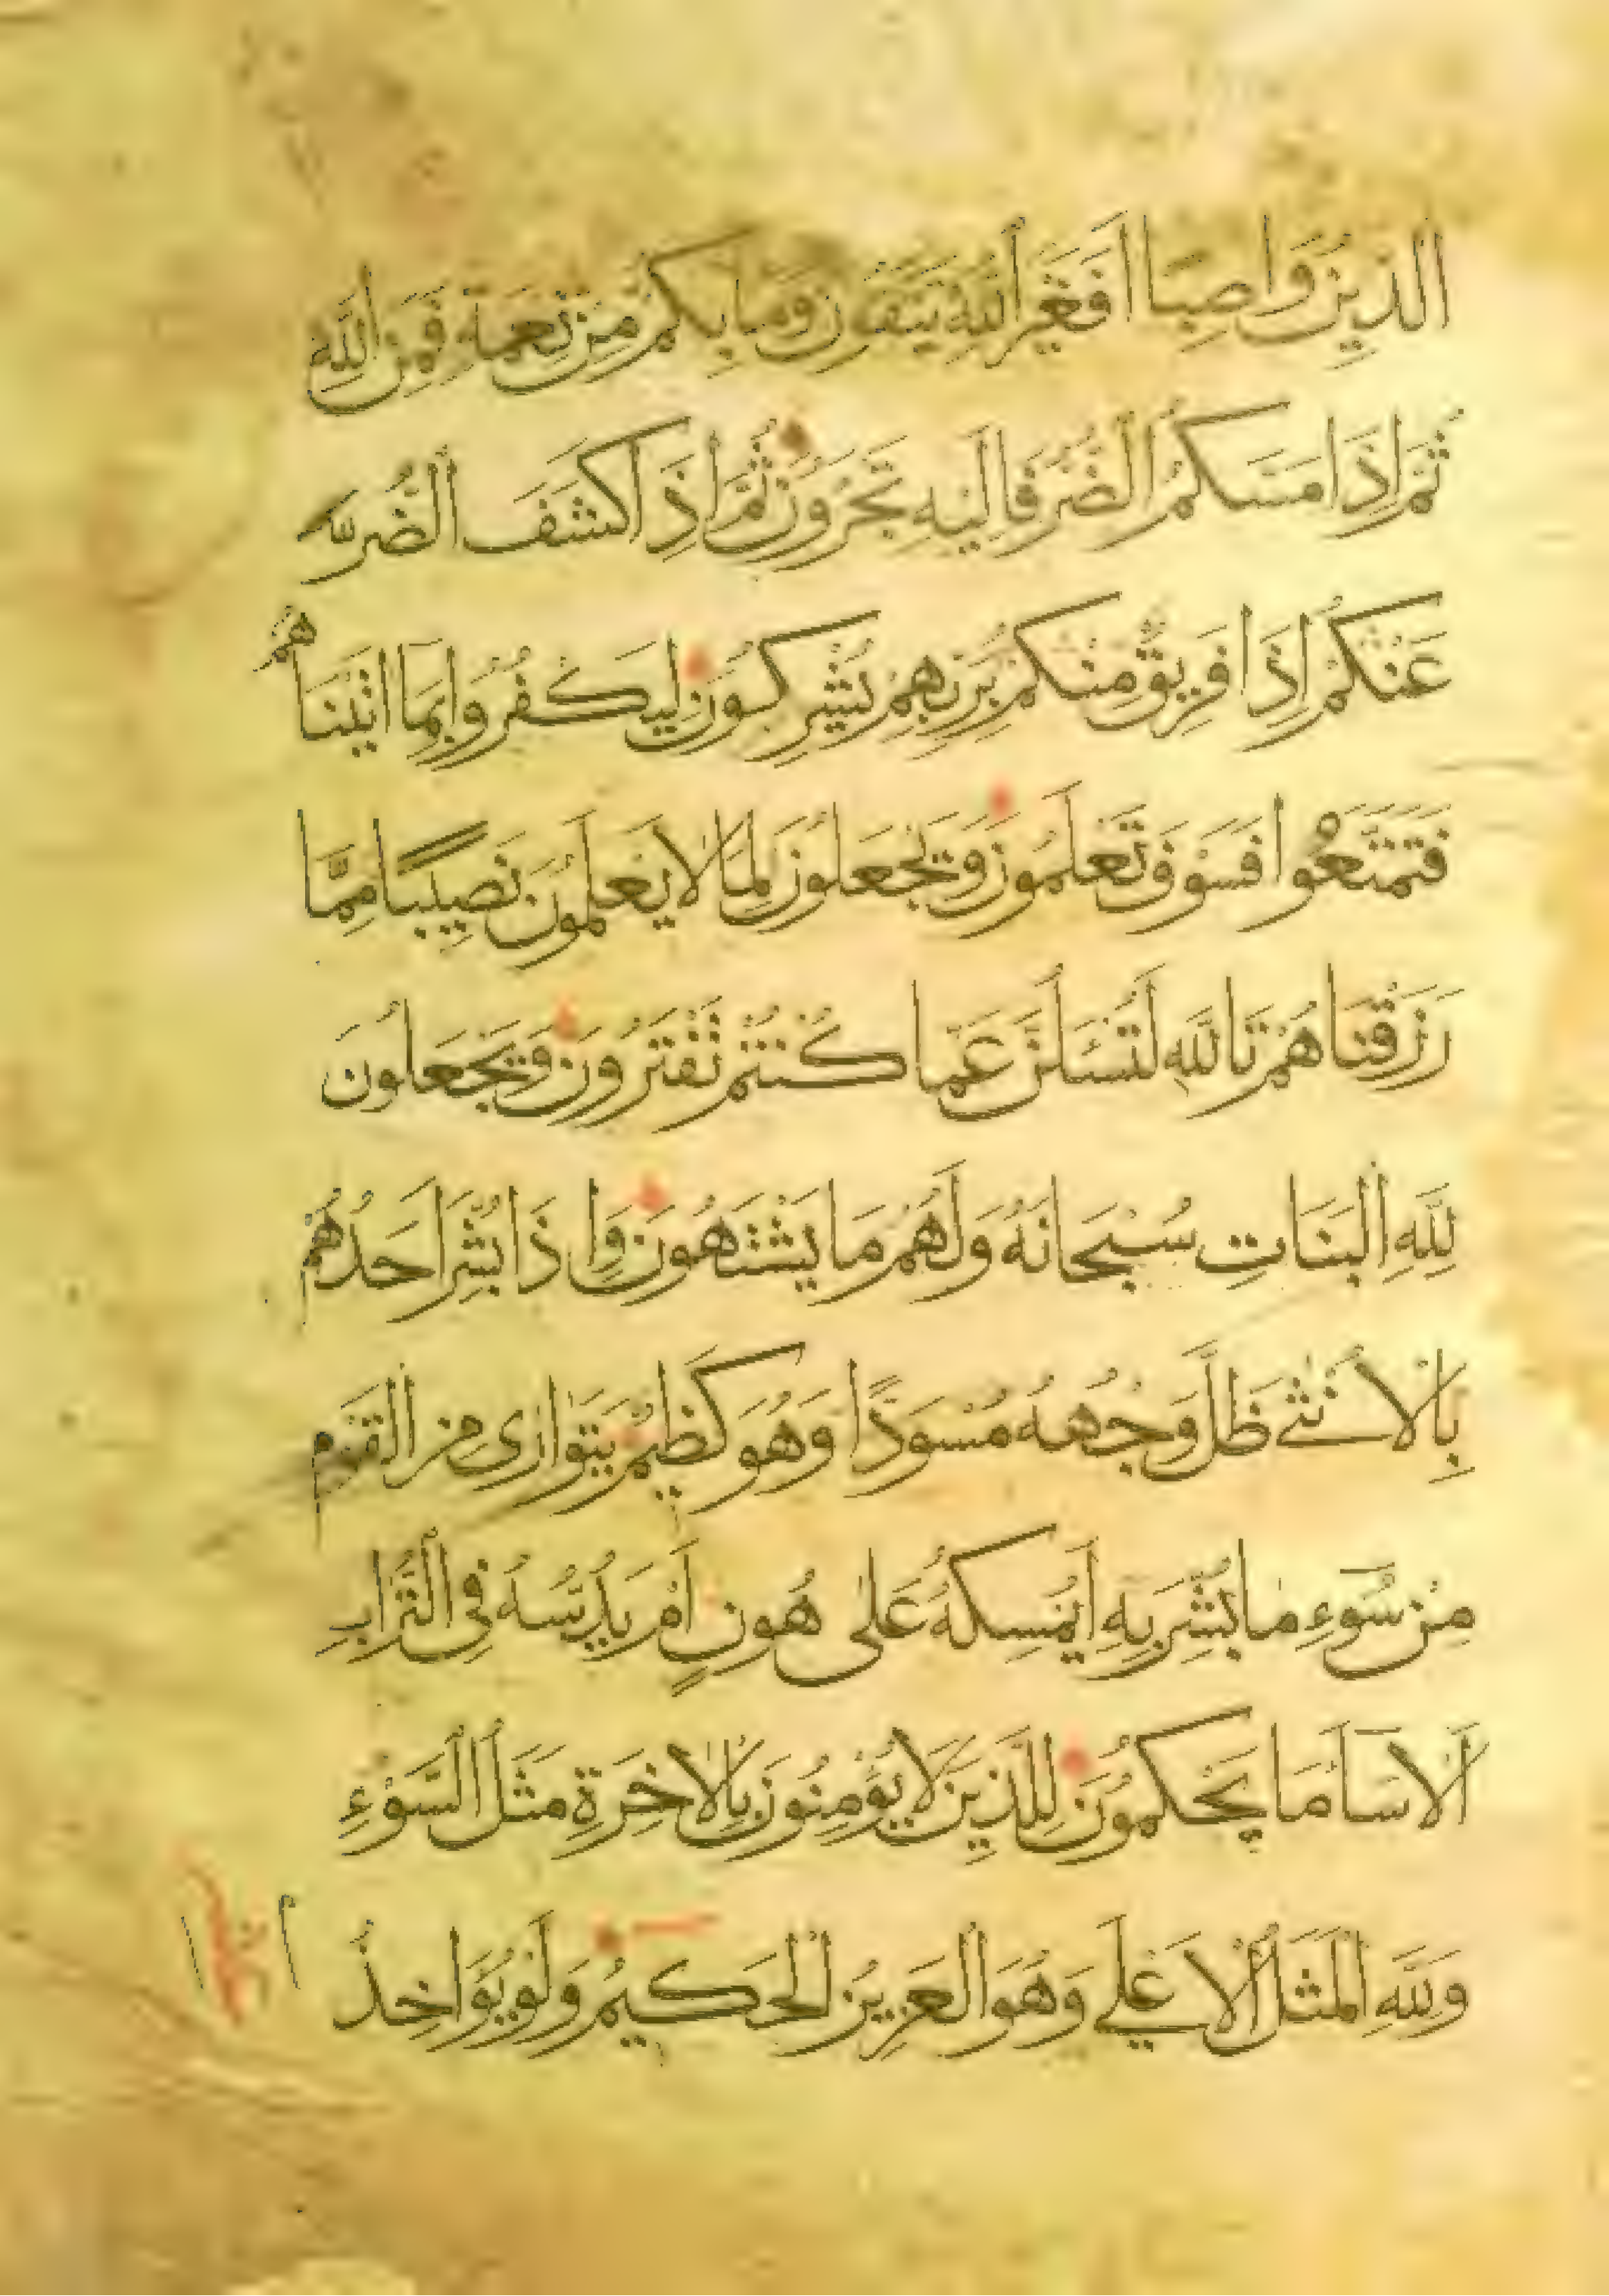 الدِّينُ وَاصِبًا أَفَغَيْرَ اللهِ تَتَّقُونَ وَمَا بِكُمْ مِنْ نِعْمَةٍ فَمِنَ اللهِ
ثُمَّ إِذَا مَسَّكُمُ الضُّرُّ فَإِلَيْهِ تَجْرَوُنَ ثُمَّ إِذَا كَشَفَ الضُّرَّ
عَنْكُمْ إِذَا فَرِيقٌ مِنْكُمْ بِرَبِّهِمْ يُشْرِكُونَ لِيَكْفُرُوا بِمَا اتَيْنَاهُمْ
فَتَمَتَّعُوا فَسَوْفَ تَعْلَمُونَ وَيَجْعَلُونَ لِمَا لَا يَعْلَمُونَ نَصِيبًا مِمَّا
رَزَقْنَاهُمْ تَاللهِ لَتُسْئَلُنَّ عَمَّا كُنْتُمْ تَفْتَرُونَ وَيَجْعَلُونَ
لِلَّهِ الْبَنَاتِ سُبْحَانَهُ وَلَهُمْ مَا يَشْتَهُونَ وَإِذَا بُشِّرَ أَحَدُهُمْ
بِالْأُنْثَى ظَلَّ وَجْهُهُ مُسْوَدًّا وَهُوَ كَظِيمٌ يَتَوَارَى مِنَ الْقَوْمِ
مِنْ سُوءِ مَا بُشِّرَ بِهِ أَيُمْسِكُهُ عَلَى هُونٍ أَمْ يَدُسُّهُ فِي التُّرَابِ
أَلَا سَاءَ مَا يَحْكُمُونَ لِلَّذِينَ لَا يُؤْمِنُونَ بِالْآخِرَةِ مَثَلُ السَّوْءِ
وَلِلَّهِ الْمَثَلُ الْأَعْلَى وَهُوَ الْعَزِيزُ الْحَكِيمُ وَلَوْ يُؤَاخِذُ